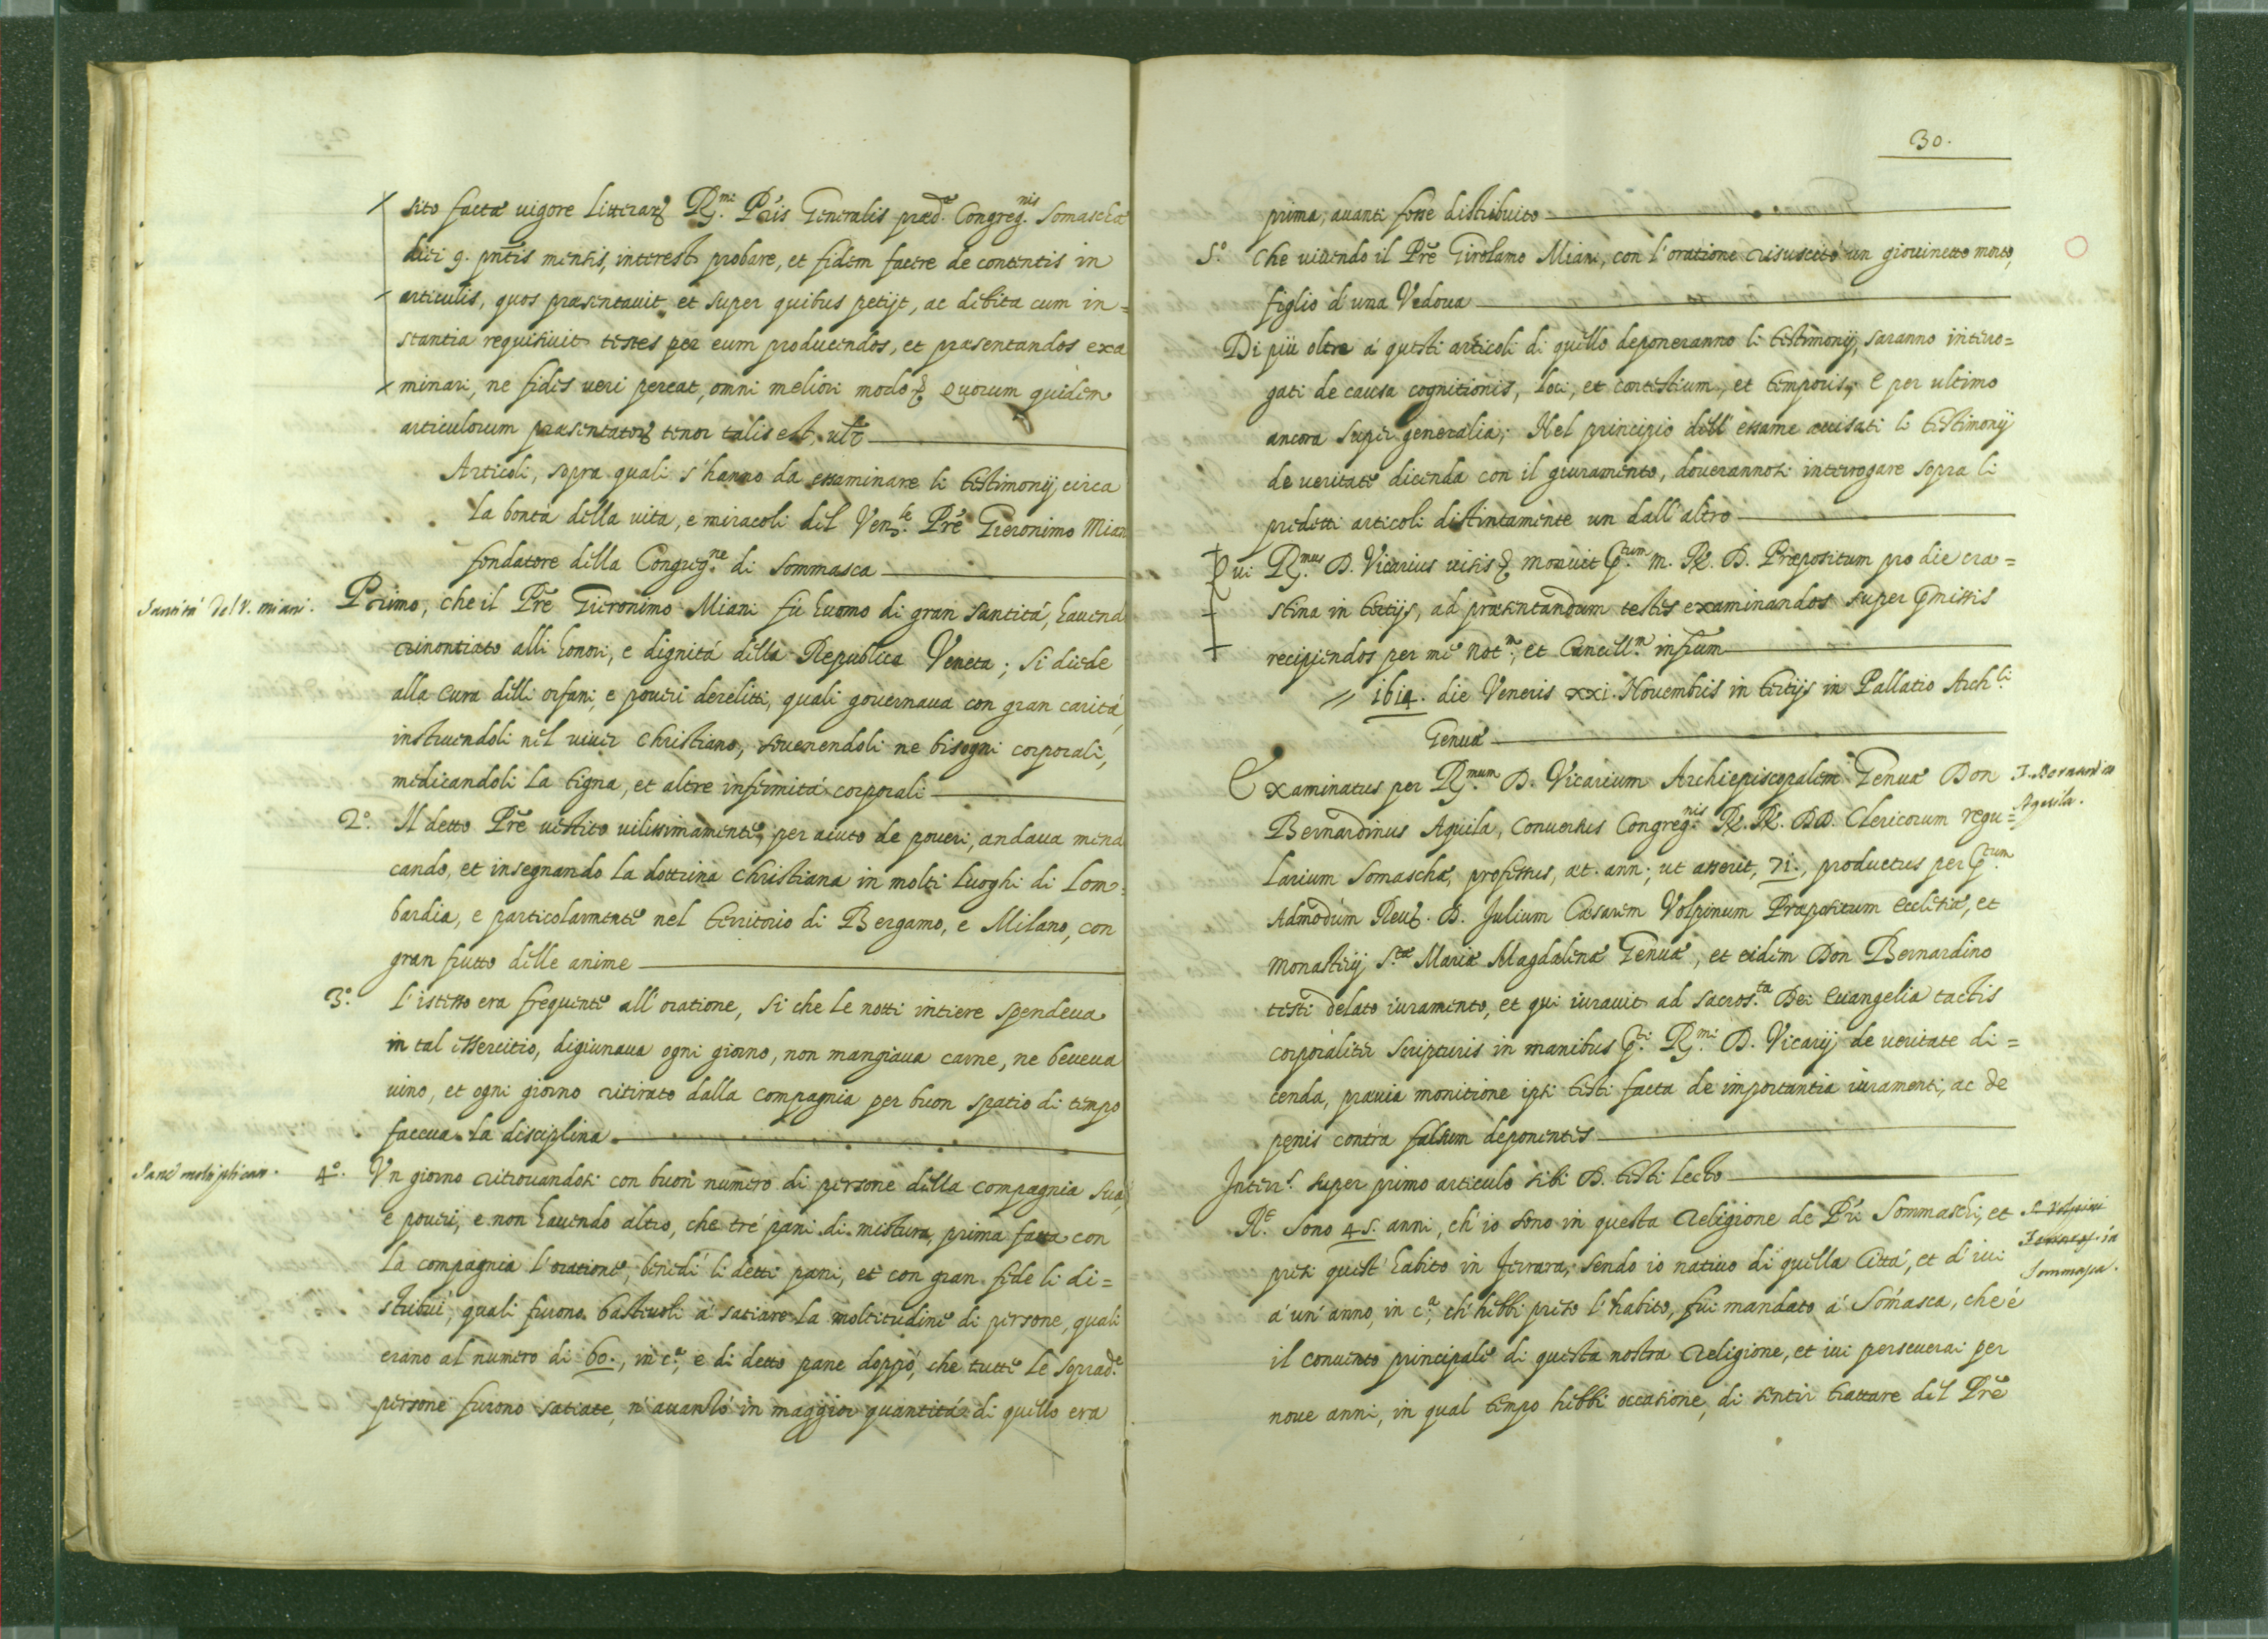 sito factæ vigore litterarʒ R.mi Pris Generalis præd.æ Congreg.nis Somaschæ
diei 9. pñtis mensis, interest probare, et fidem facere de contentis in
articulis, quos præsentavit et super quibus petijt, ac debita cum in=
stantia requisivit testes per eum producendos, et præsentandos exa
minari, ne fides veri pereat, omni meliori modo &c. Quorum quidem
articulorum præsentatorʒ tenor talis est, vtʒ
Articoli, sopra quali s'hanno da essaminare li testimonij circa
la bontà della vita, e miracoli del Ven.le Prẽ Gieronimo Mian
fondatore della Congreg.ne di Sommasca
Santità del V. Miani.
Primo, che il Prẽ Gieronimo Miani fu huomo di gran santità, havend
rinontiato alli honori, e dignità della Republica Veneta; si diede
alla cura delli orfani, e poveri derelitti, quali governava con gran carità
instruendoli nel viver christiano, sovenendoli ne bisogni corporali,
medicandoli la tigna, et altre infirmità corporali
2.o Il detto Prẽ vestito vilissimamente, per aiuto de poveri, andava mend
cando, et insegnando la dottrina christiana in molti luoghi di Lom=
bardia, e particolarmente nel territorio di Bergamo, e Milano, con
gran frutto delle anime
3.o L'istesso era frequente all'oratione, si che le notti intiere spendeva
in tal essercitio, digiunava ogni giorno, non mangiava carne, ne beveva
vino, et ogni giorno ritirato dalla compagnia per buon spatio di tempo
faceva la disciplina
4.o Vn giorno ritrovandosi con buon numero di persone della compagnia sua,
e poveri, e non havendo altro, che tré pani di mistura, prima fatta con
la compagnia l'oratione, benedì li detti pani, et con gran fede li di=
stribuì, quali furono bastevoli à satiare la moltitudine di persone, quali
erano al numero di 60., in c.a, e di detto pane doppò, che tutte le soprad.e
persone furono satiate, n'avanzò in maggior quantità di quello era
30.
prima, avanti fosse distribuito
5.o Che vivendo il Prẽ Girolamo Miani, con l'oratione risuscitò un giovinetto morto,
figlio d'una Vedova
Di più oltre à questi articoli di quello deponeranno li testimonij, saranno intero=
gati de causa cognitionis, loci, et contestium, et temporis, e per ultimo
ancora super generalia; Nel principio dell'essame avisati li testimonij
de veritate dicenda con il giuramento, doverannosi interrogare sopra li
predetti articoli distintamente un dall'altro
Qui R.mus D. Vicarius visis &c. monuit p.tum m. R. D. Præpositum pro die cra=
stina in tertijs, ad præsentandum testes examinandos super p̃missis
recipiendos per me Not.m, et Cancell.m infr̃um
1614. die Veneris xxi. Novembris in tertijs in Pallatio Arch.li
Genuæ
Examinatus per R.mum D. Vicarium Archiepiscopalem Genuæ Don
Bernardinus Aquila, conversus Congreg.nis R. R. DD. Clericorum regu=
larium Somaschæ, professus, æt. ann; ut asserit, 71., productus per p.tum
Admodum Reu. D. Julium Cæsarem Volpinum Præpositum ecclesiæ, et
monasterij S.tæ Mariæ Magdalenæ Genuæ, et eidem Don Bernardino
testi delato iuramento, et qui iuravit ad sacros.ta Dei evangelia tactis
corporaliter scripturis in manibus p.ti R.mi D. Vicarij de veritate di=
cenda, prævia monitione ipsi testi facta de importantia iuramenti, ac de
penis contra falsum deponentes
Aquila.
Interr.s super primo articulo sibi D. testi lecto
R.t Sono 45. anni, ch'io sono in questa Religione de Prĩ Sommaschi, et
presi quest'habito in Ferrara, sendo io nativo di quella Città, et d'ivi
à un'anno, in c.a ch'hebbi preso l'habito, fui mandato à Somasca, che è
il convento principale di questa nostra Religione, et ivi perseverai per
nove anni, in qual tempo hebbi occasione, di sentir trattare del Prẽ